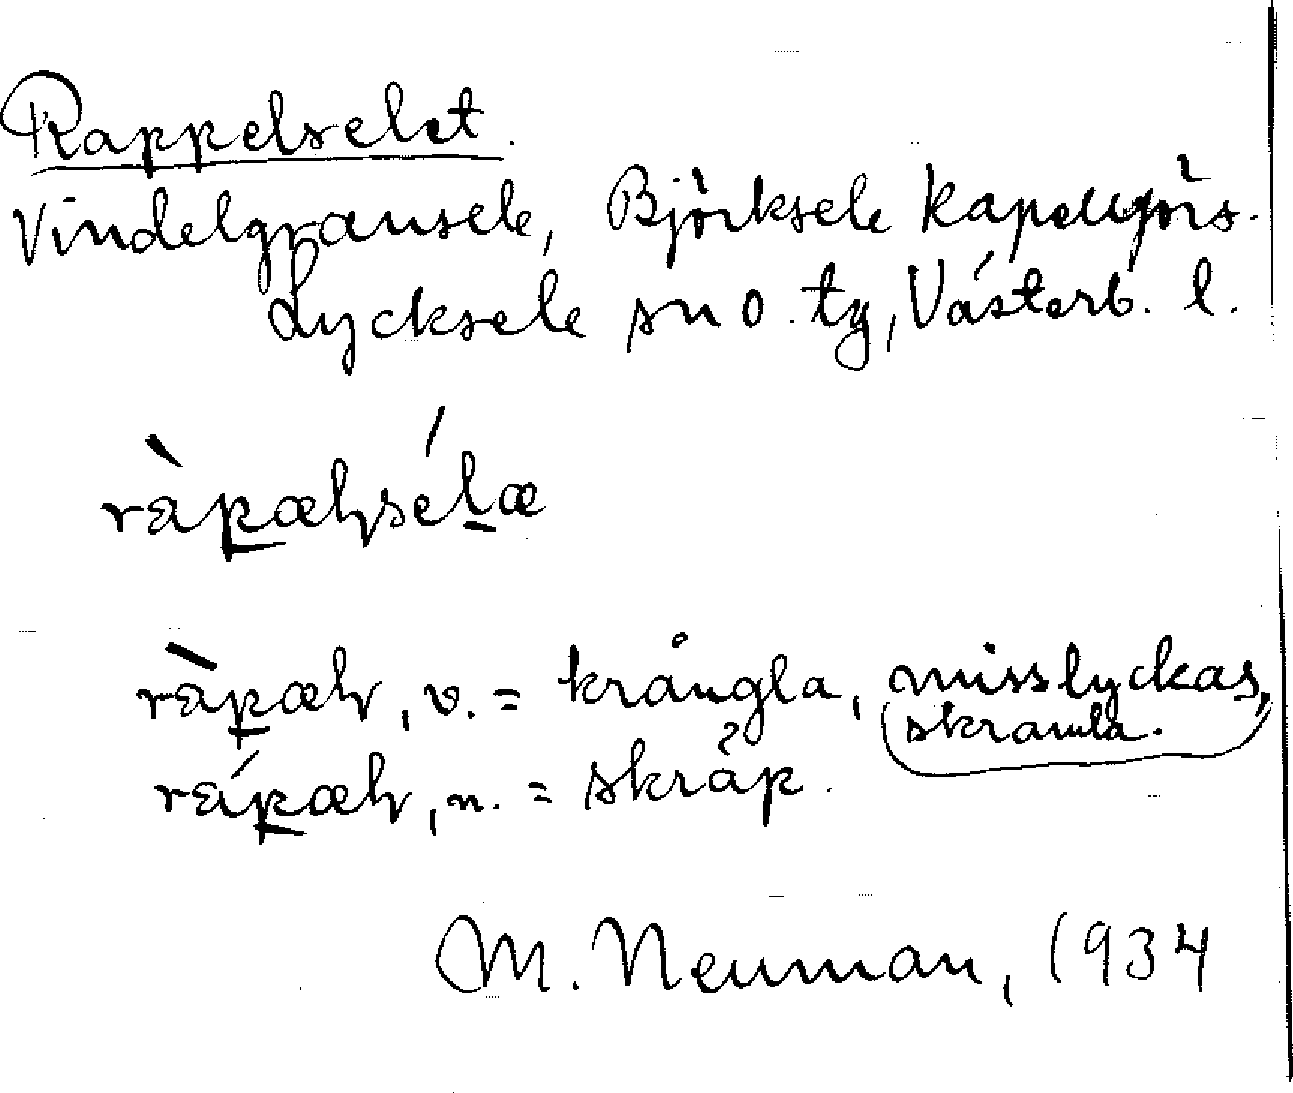 Rappelselet.
Vindelgransele, Björksele kapellförs.
Lycksele sn o. ty, Västerb. l.
ràpæɫsélæ
ràpæɫ, v. = krångla, misslyckas,
skramla.
rápæɫ, n. = skräp.
M. Neuman, 1934